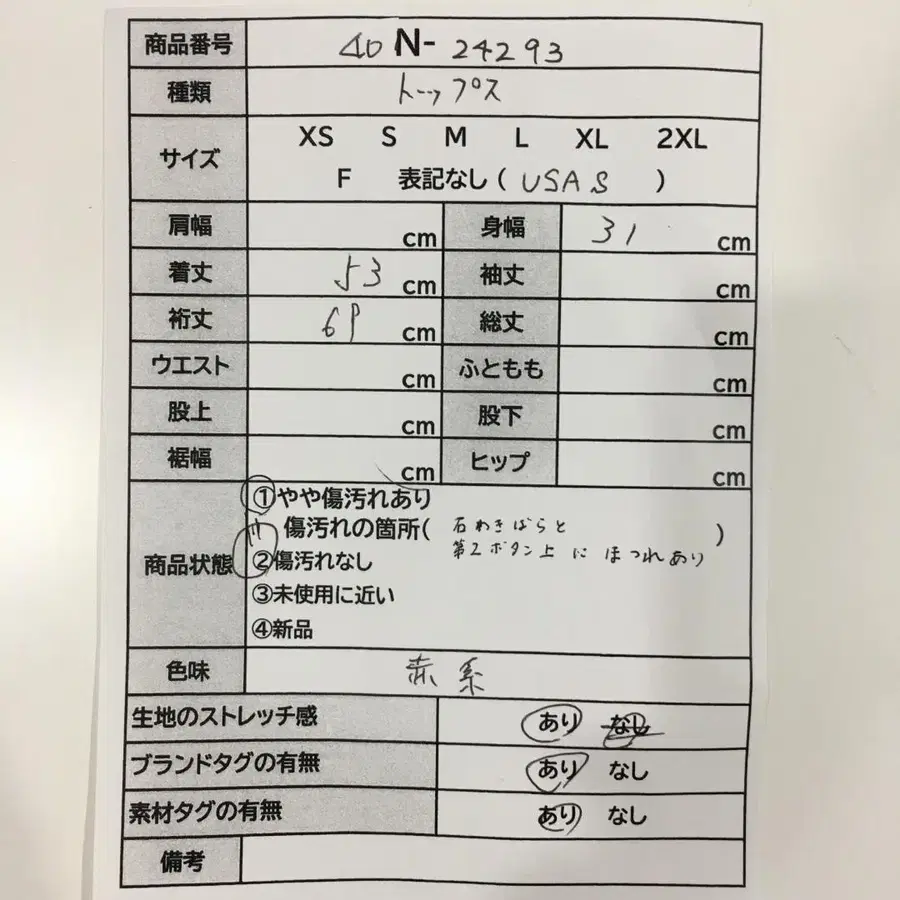 商品番号 40 N- 24293
種類 トップス
サイズ XS S M L XL 2XL
F 表記なし ( USA S )
肩幅 cm 身幅 31 cm
着丈 53 cm 袖丈 cm
裄丈 69 cm 総丈 cm
ウエスト cm ふともも cm
股上 cm 股下 cm
裾幅 cm ヒップ cm
商品状態
①やや傷汚れあり
傷汚れの箇所( 右わきばらと
第2ボタン上にほつれあり )
②傷汚れなし
③未使用に近い
④新品
色味 赤系
生地のストレッチ感 あり なし
ブランドタグの有無 あり なし
素材タグの有無 あり なし
備考